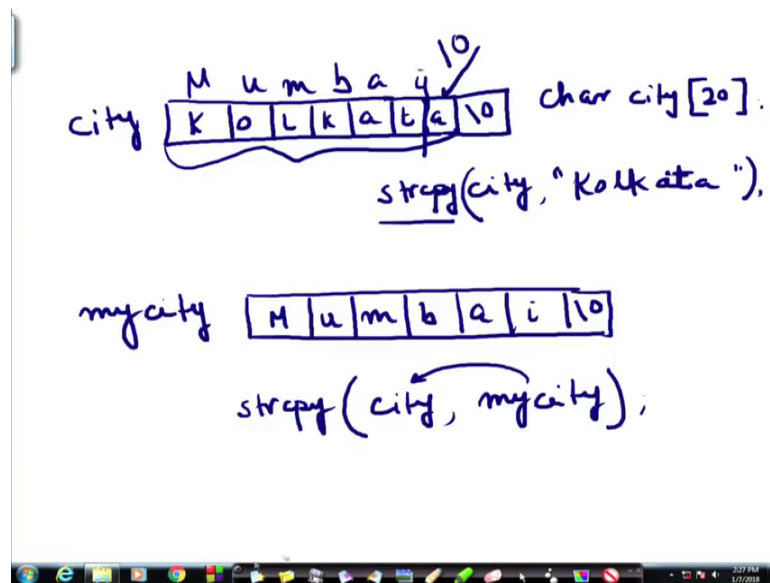 \0
M u m b a y
city K o L k a t a \0 char city [20].
strcpy(city, "Kolkata"),
mycity M u m b a i \0
strcpy (city, mycity);
2:27 PM
1/7/2018